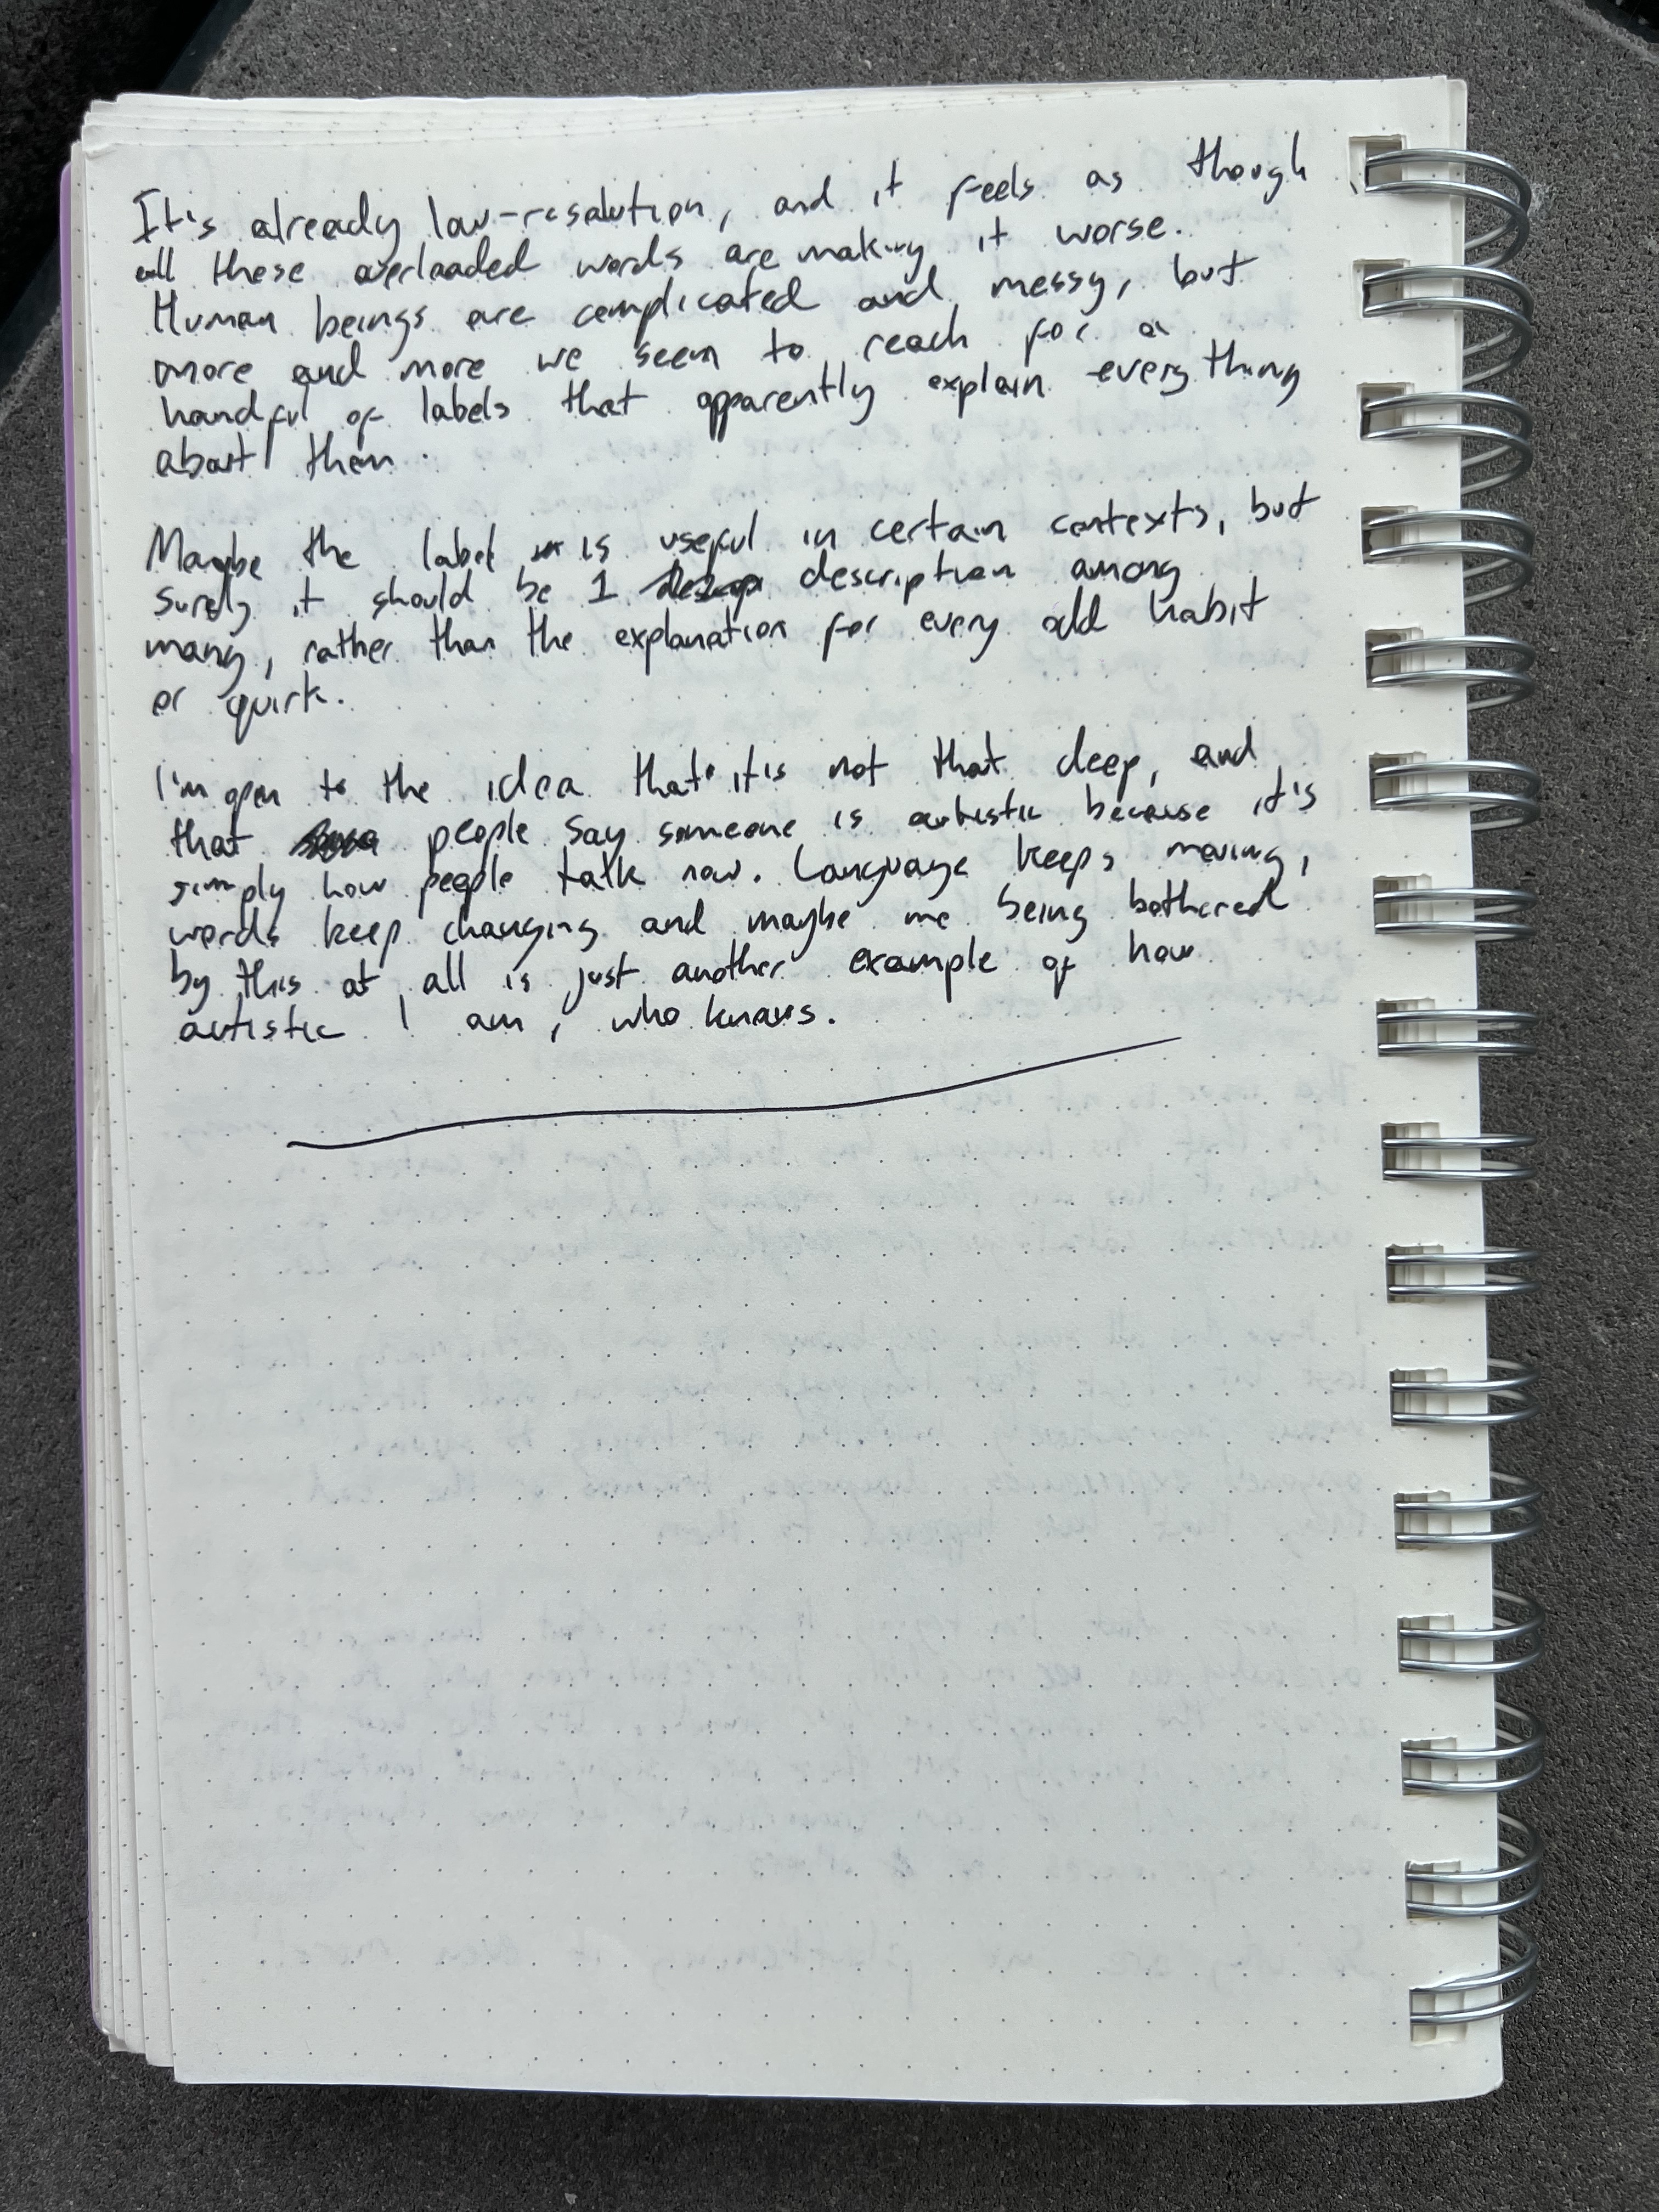 It's already low-resolution, and it feels as though
all these overloaded words are making it worse.
Human beings are complicated and messy, but
more and more we seem to reach for a
handful of labels that apparently explain everything
about them.
Maybe the label is useful in certain contexts, but
surely it should be 1 description among
many, rather than the explanation for every odd habit
or quirk.
I'm open to the idea that it is not that deep, and
that people say someone is autistic because it's
simply how people talk now. Language keeps moving,
words keep changing and maybe me being bothered
by this at all is just another example of how
autistic I am, who knows.